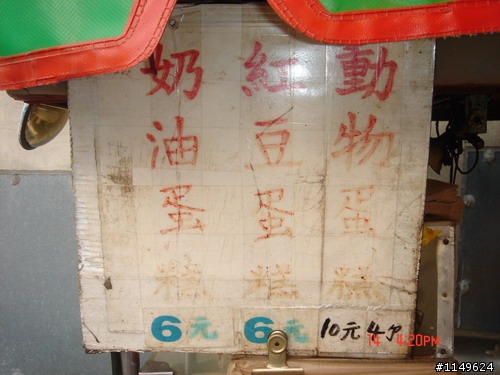 動物蛋糕
10元4个
紅豆蛋糕
6元
奶油蛋糕
6元
4:20PM
#1149624